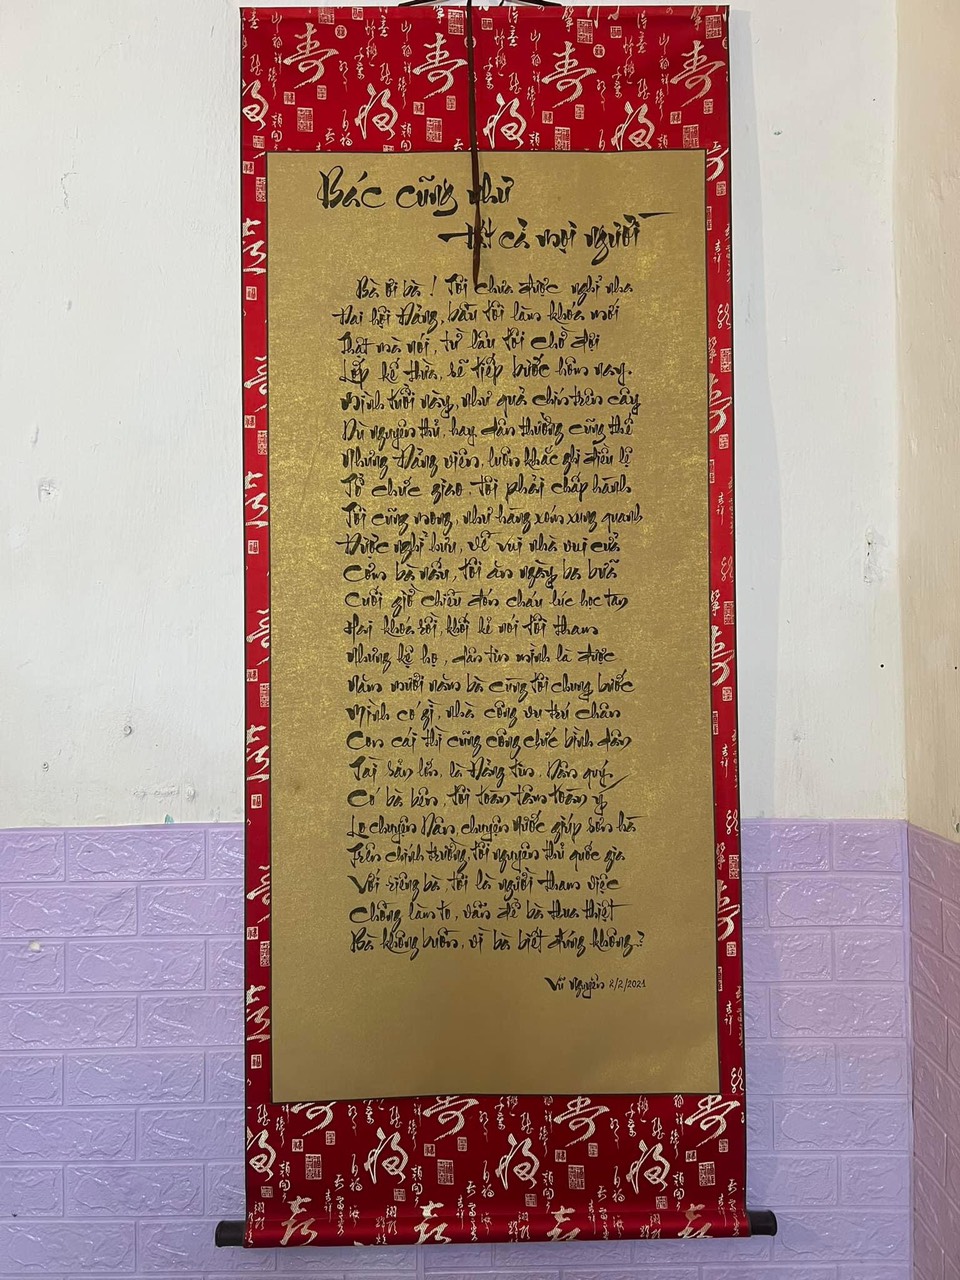 Bác cũng như
tất cả mọi người
Bà ơi bà! Tôi chưa được nghỉ nha
Đại hội Đảng, bầu tôi làm khóa mới
Thật mà nói, từ lâu tôi chờ đợi
Lớp kế thừa, sẽ tiếp bước hôm nay.
Mình tuổi này, như quả chín trên cây
Dù nguyên thủ, hay dân thường cũng thế
Nhưng Đảng viên, luôn khắc ghi điều lệ
Tổ chức giao, tôi phải chấp hành
Tôi cũng mong, như hàng xóm xung quanh
Được nghỉ hưu, về vui nhà vui cửa
Cơm bà nấu, tôi ăn ngày ba bữa
Cuối giờ chiều đón cháu lúc học tan
Hai khóa rồi, khối kẻ nói tôi tham
Nhưng kệ họ, dân tin mình là được
Năm mươi năm bà cùng tôi chung bước
Mình có gì, nhà công vụ trú chân
Con cái thì cũng công chức bình dân
Tài sản lớn, là Đảng tin, Dân quý
Có bà bên, tôi toàn tâm toàn ý
Lo chuyện Dân, chuyện nước giúp sơn hà
Trên chính trường, tôi nguyên thủ quốc gia
Với riêng bà, tôi là người tham việc
Chồng làm to, vấn đề bà thua thiệt
Bà không buồn, vì bà biết đúng không?
Vũ Nguyên 2/2/2021
壽
福
喜